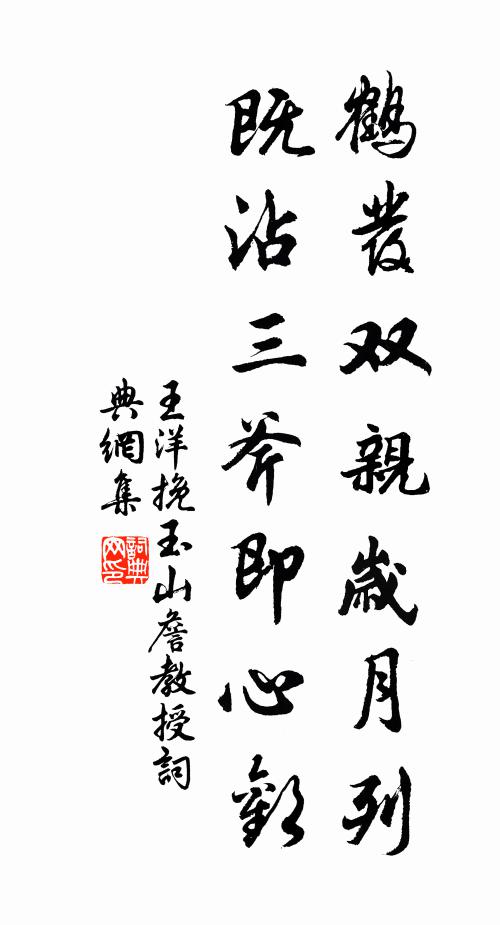 鶴發双親歲月列
既沾三斧即心歡
王洋挽玉山詹教授詞
典網集
詞典
网印